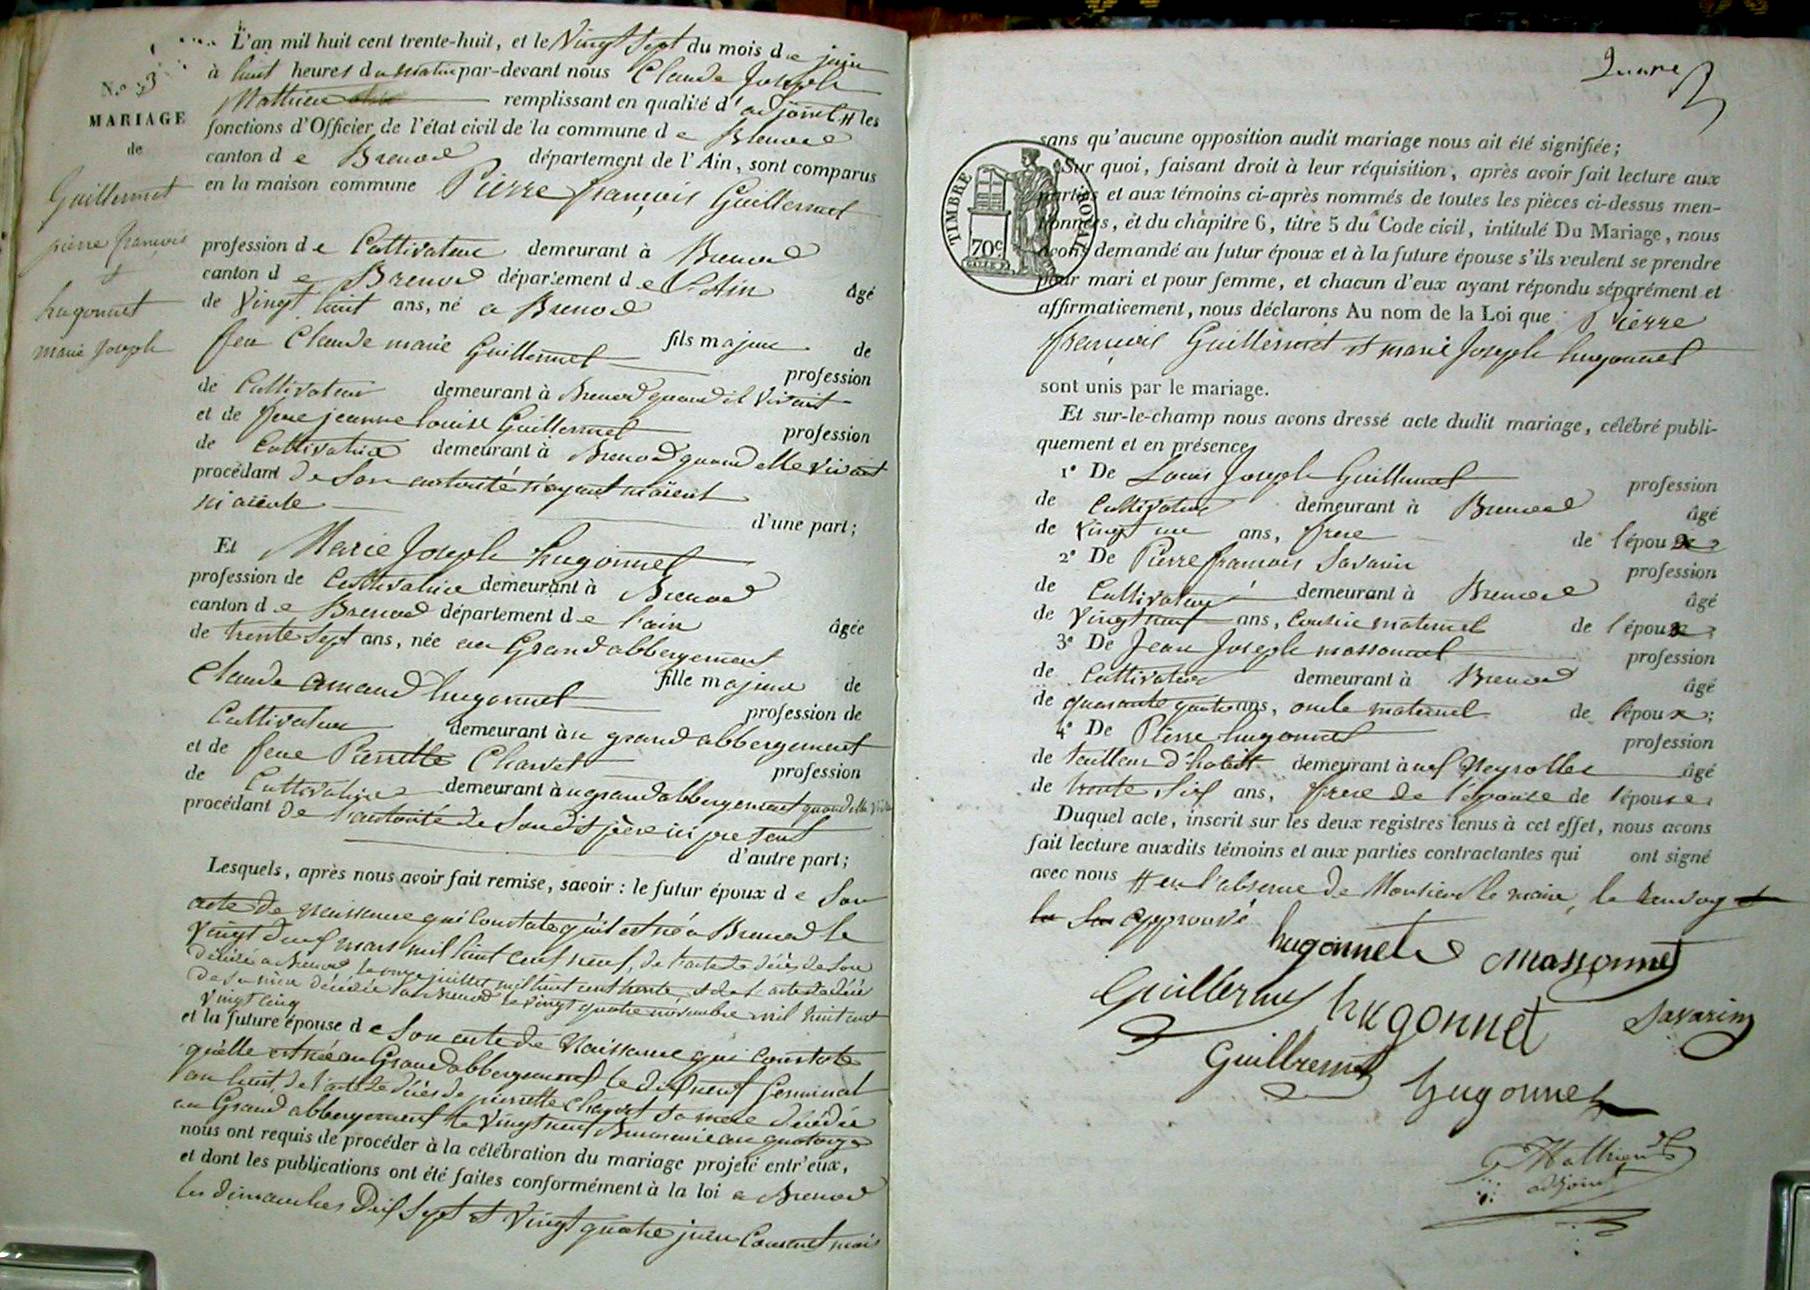 L'an mil huit cent trente-huit, et le Vingt Sept du mois de juin
à huit heures du matin par-devant nous Claude Joseph
Mathieu remplissant en qualité d'adjoint # les
fonctions d'Officier de l'état civil de la commune de Brenod
canton de Brenod département de l'Ain, sont comparus
en la maison commune Pierre françois Guillermet
N.º 3
MARIAGE
de
Guillermet
pierre françois
&
hugonnet
marie Joseph
profession de Cultivateur demeurant à Brenod
canton de Brenod département de L'Ain âgé
de Vingt huit ans, né a Brenod
fils majeur de
feu Claude marie Guillermet profession
de Cultivateur demeurant à Brenod quand il vivait
et de feue jeanne louise Guillermet profession
de Cultivatrice demeurant à Brenod quand elle vivait
procédant de Son autorité n'ayant
d'une part;
Et Marie Joseph hugonnet
profession de Cultivatrice demeurant à Brenod
canton de Brenod département de l'ain âgée
de trente Sept ans, née au Grand abbergement
fille majeure de
Claude amand hugonnet profession de
Cultivateur demeurant à u grand abbergement
et de feue Pierrette Charvet profession
de Cultivatrice demeurant à u grand abbergement quand elle vivait
procédant de l'autorité de Son dit père ici present
d'autre part;
Lesquels, après nous avoir fait remise, savoir : le futur époux de Son
acte de naissance qui Constate qu'il est né à Brenod le
Vingt deux mars mil huit cent neuf, de l'acte de décès de Son
décédé a Brenod le onze juillet mil huit cent trente et de l'acte de décès
de Sa mère décédée au Brenod le vingt quatre novembre mil huit cent
vingt cinq
et la future épouse de Son acte de Naissance qui Constate
qu'elle est née au Grand abbergement le dix neuf Germinal
an huit, de l'acte de décès de pierrette Charvet Sa mère décédée
au Grand abbergement le Vingt neuf Brumaire an quatorze
nous ont requis de procéder à la célébration du mariage projeté entr'eux,
et dont les publications ont été faites conformément à la loi a Brenod
les dimanches Dix Sept et Vingt quatre juin Courant mois
TIMBRE ROYAL
70c
sans qu'aucune opposition audit mariage nous ait été signifiée;
Sur quoi, faisant droit à leur réquisition, après avoir fait lecture aux
parties et aux témoins ci-après nommés de toutes les pièces ci-dessus men-
tionnées, et du chapitre 6, titre 5 du Code civil, intitulé Du Mariage, nous
avons demandé au futur époux et à la future épouse s'ils veulent se prendre
pour mari et pour femme, et chacun d'eux ayant répondu séparément et
affirmativement, nous déclarons Au nom de la Loi que Pierre
françois Guillermet et marie Joseph hugonnet
sont unis par le mariage.
Et sur-le-champ nous avons dressé acte dudit mariage, célébré publi-
quement et en présence
1º De Louis Joseph Guillermet profession
de Cultivateur demeurant à Brenod âgé
de Vingt un ans, frere de l'époux;
2º De Pierre francois Savarin profession
de Cultivateur demeurant à Brenod âgé
de Vingt neuf ans, cousin maternel de l'époux;
3º De Jean Joseph massonnet profession
de Cultivateur demeurant à Brenod âgé
de quarante quatre ans, oncle maternel de l'époux;
4º De Pierre hugonnet profession
de tailleur d'habit demeurant à Neyrolles âgé
de trente Six ans, frere de l'épouse de l'épouse.
Duquel acte, inscrit sur les deux registres tenus à cet effet, nous avons
fait lecture auxdits témoins et aux parties contractantes qui ont signé
avec nous # en l'absence de Monsieur le maire, le renvoy
approuvé
hugonnet Massonnet
Guillermet hugonnet Savarin
Guillremet hugonnet
Mathieu
adjoint